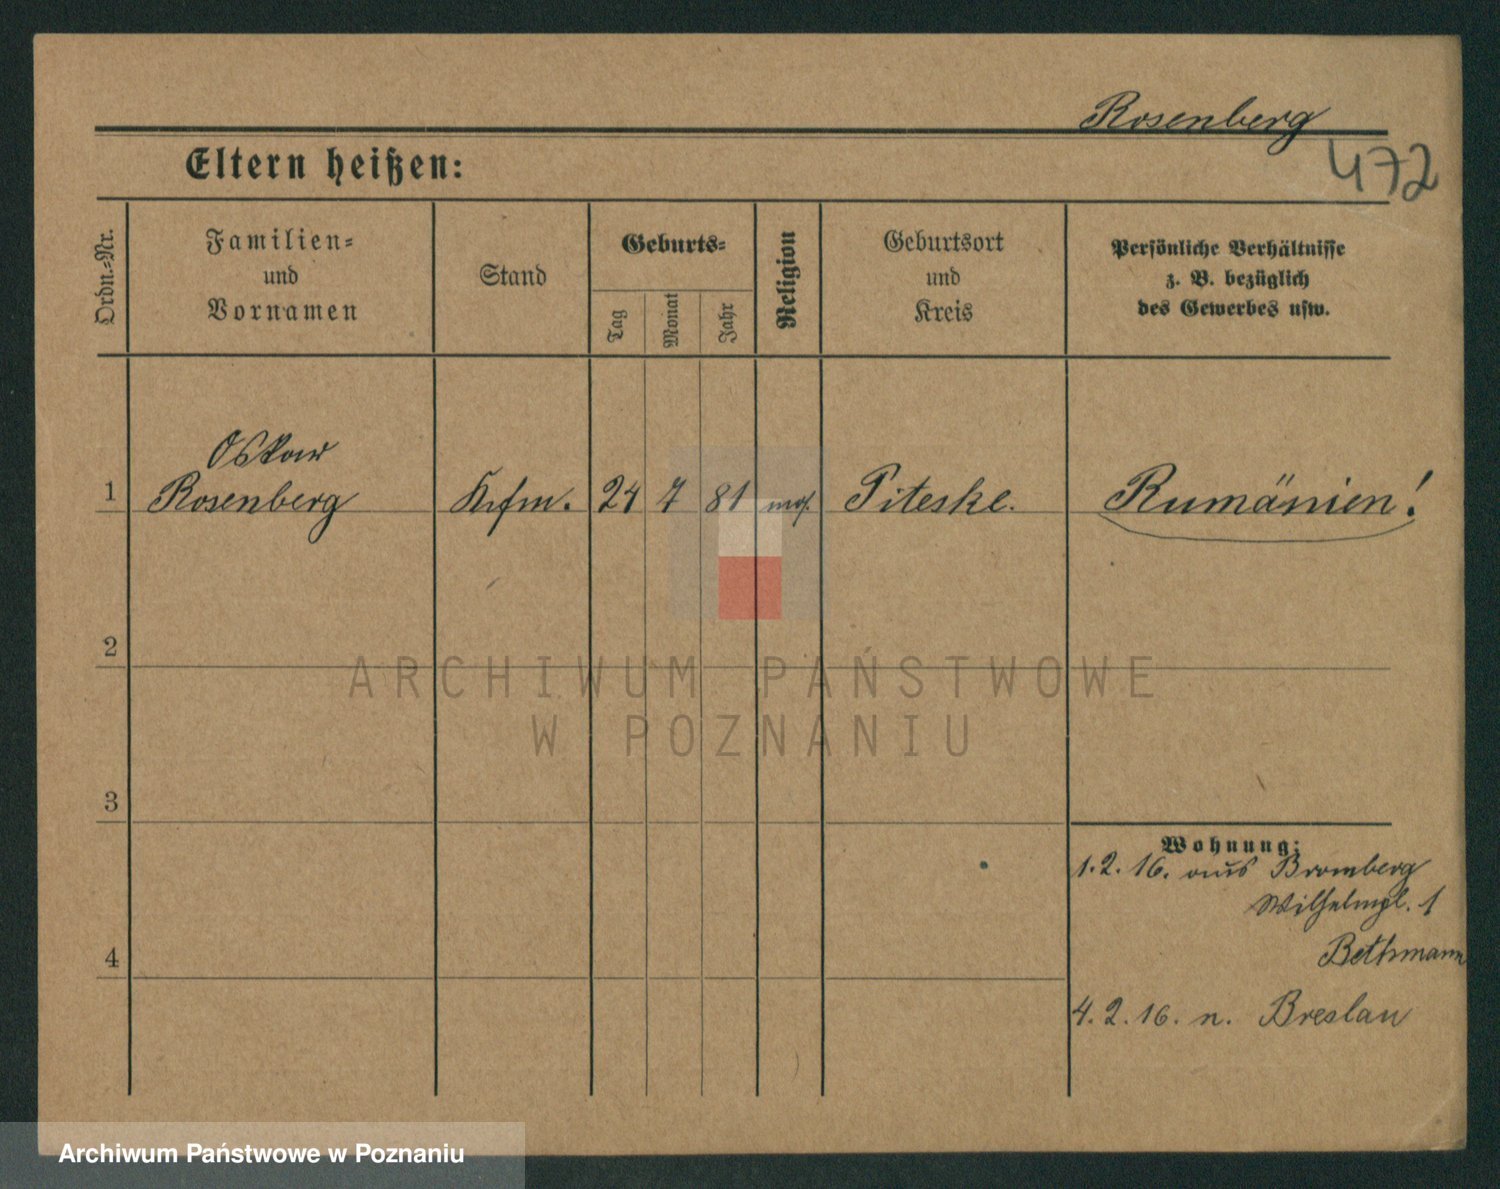 Rosenberg
472
Eltern heißen:
Ordn.-Nr.
Familien-
und
Vornamen
Stand
Geburts-
Tag
Monat
Jahr
Religion
Geburtsort
und
Kreis
Persönliche Verhältnisse
z. B. bezüglich
des Gewerbes usw.
Oskar
1 Rosenberg Kfm. 24 7 81 mos. Piteske. Rumänien!
2
ARCHIWUM PAŃSTWOWE
W POZNANIU
3
Wohnung:
1.2.16. aus Bromberg
Wilhelmpl. 1
Bethmann
4
4.2.16. n. Breslau
Archiwum Państwowe w Poznaniu